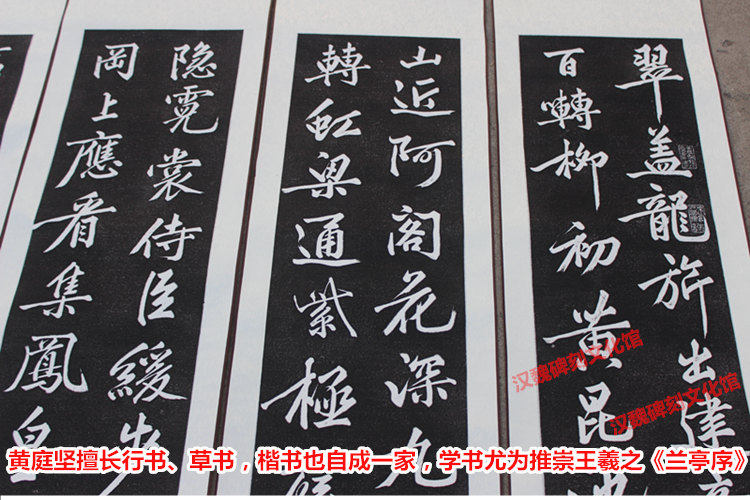 翠盖龍旂出建
百囀柳初黄昆
山近阿閣花深九
轉虹梁通紫極
隐霓裳侍臣緩步
岡上應看集鳳皇
汉魏碑刻文化馆
汉魏碑刻文化馆
黄庭坚擅长行书、草书，楷书也自成一家，学书尤为推崇王羲之《兰亭序》